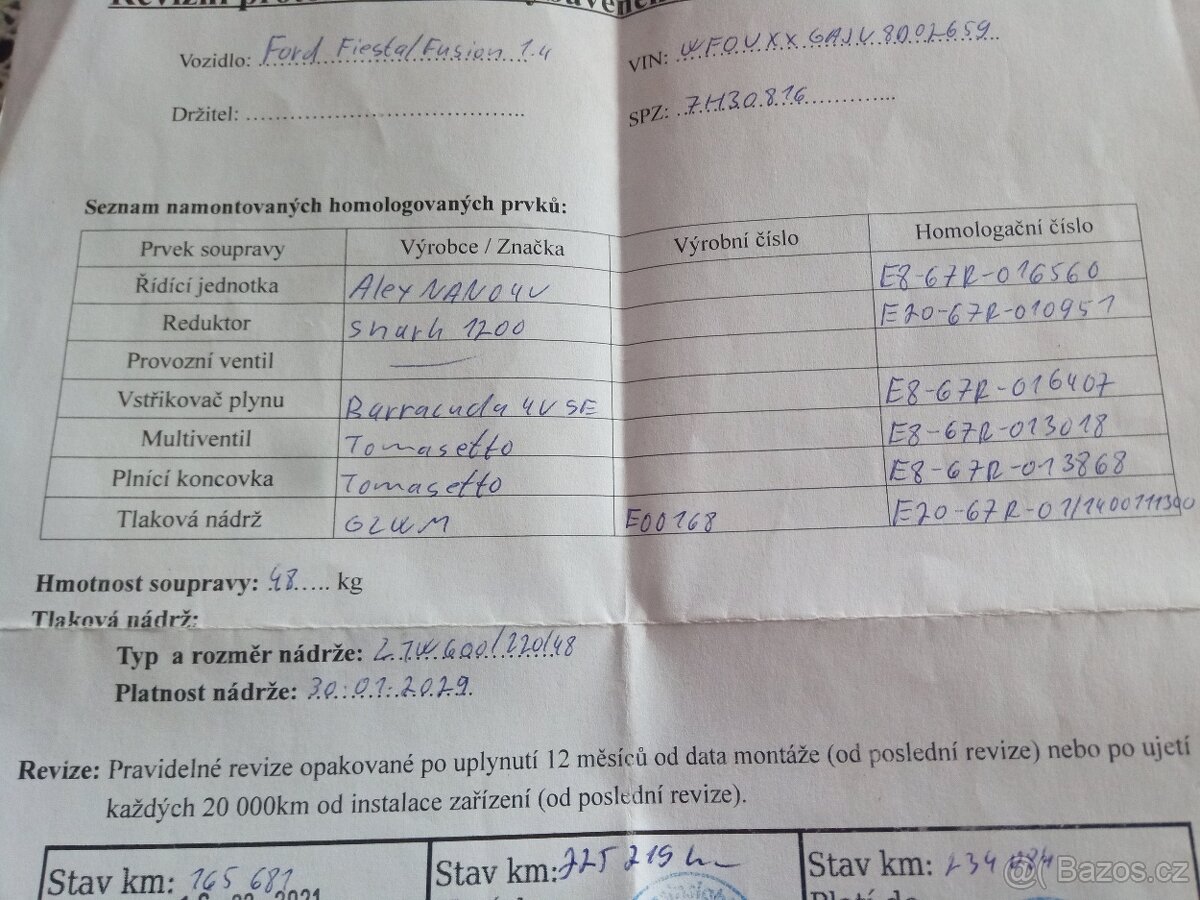 Revizní
Vozidlo: Ford Fiesta/Fusion 1.4
VIN: WF0UXXGAJU8D02659
Držitel: ........................................
SPZ: 7H30816
Seznam namontovaných homologovaných prvků:
Prvek soupravy Výrobce / Značka Výrobní číslo Homologační číslo
Řídící jednotka Alex NANO 4V E8-67R-016560
Reduktor Shark 1200 E20-67R-010951
Provozní ventil —
Vstřikovač plynu Barracuda 4V SE E8-67R-016407
Multiventil Tomasetto E8-67R-013018
Plnící koncovka Tomasetto E8-67R-013868
Tlaková nádrž GZWM E00168 E20-67R-01/1400111390
Hmotnost soupravy: 48..... kg
Tlaková nádrž:
Typ a rozměr nádrže: ZTW 600/220/48
Platnost nádrže: 30.01.2029.
Revize: Pravidelné revize opakované po uplynutí 12 měsíců od data montáže (od poslední revize) nebo po ujetí
každých 20 000km od instalace zařízení (od poslední revize).
Stav km: 165 681 Stav km: 225 219 km Stav km: 234
2021 Platí do
Bazos.cz